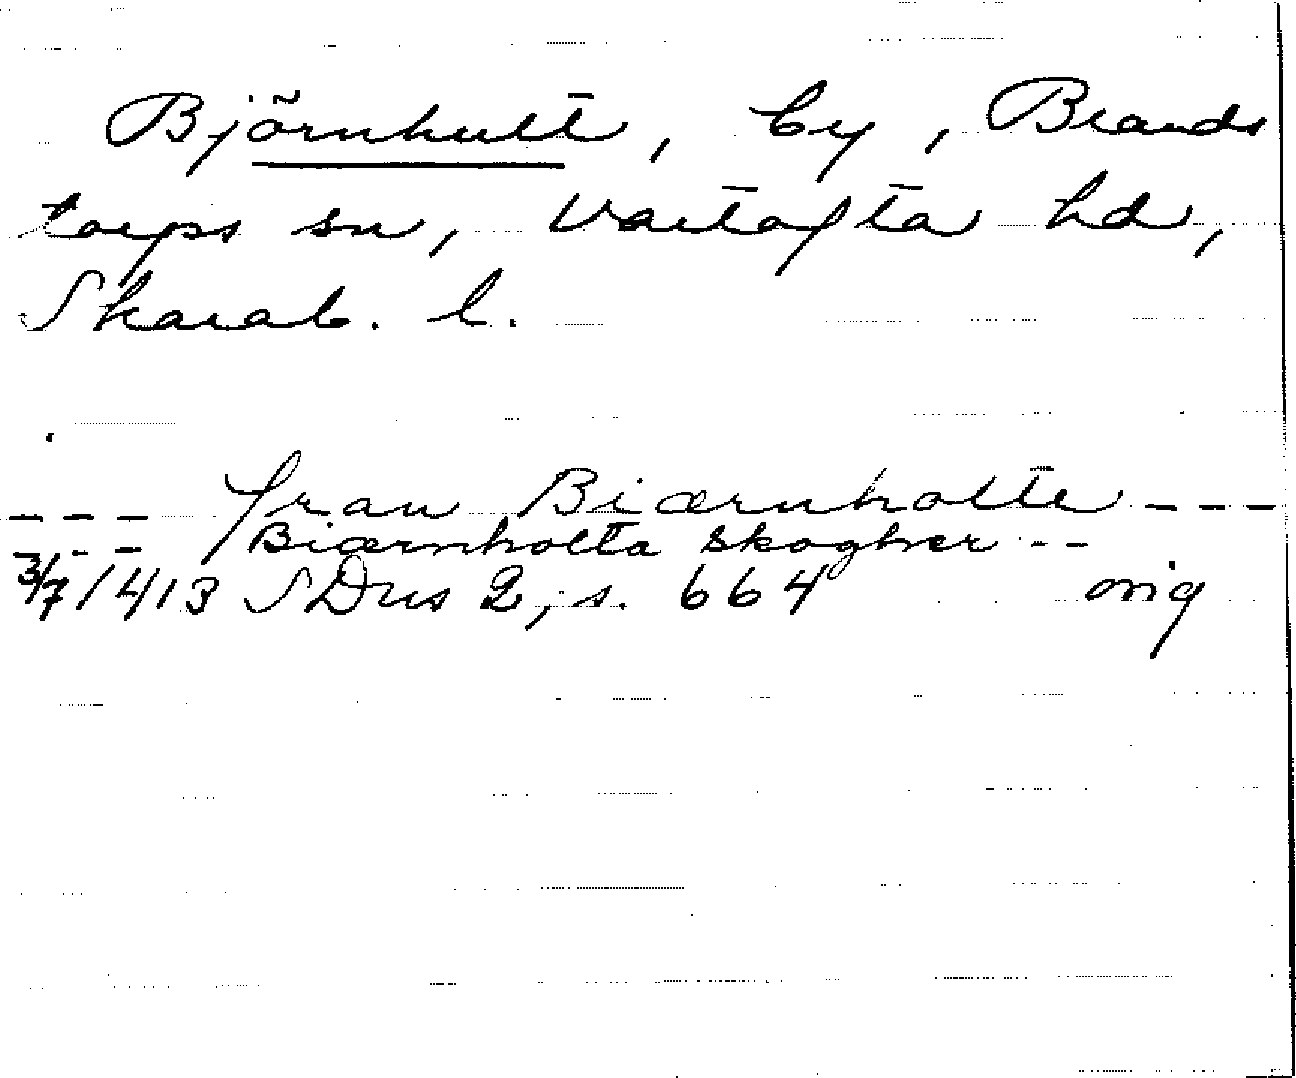 Björnhult, by, Brands
torps sn, Vartofta hd,
Skarab. l.
--- fran Biærnholte ---
--- Biærnholta skogher --
3/7 1413 SDns 2, s. 664 orig